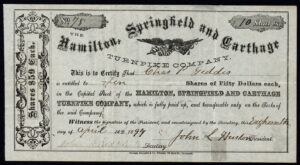 No. 78
10 Shares
THE
Hamilton, Springfield and Carthage
TURNPIKE COMPANY.
This is to Certify that Chas P. Geddes
is entitled to Ten Shares of Fifty Dollars each,
in the Capital Stock of the HAMILTON, SPRINGFIELD AND CARTHAGE
TURNPIKE COMPANY, which is fully paid up, and transferable only on the Books of
the said Company.
Witness the signature of the President, and countersigned by the Secretary, this
day of April 1897
John L.
President
Secretary
Shares $50 Each.